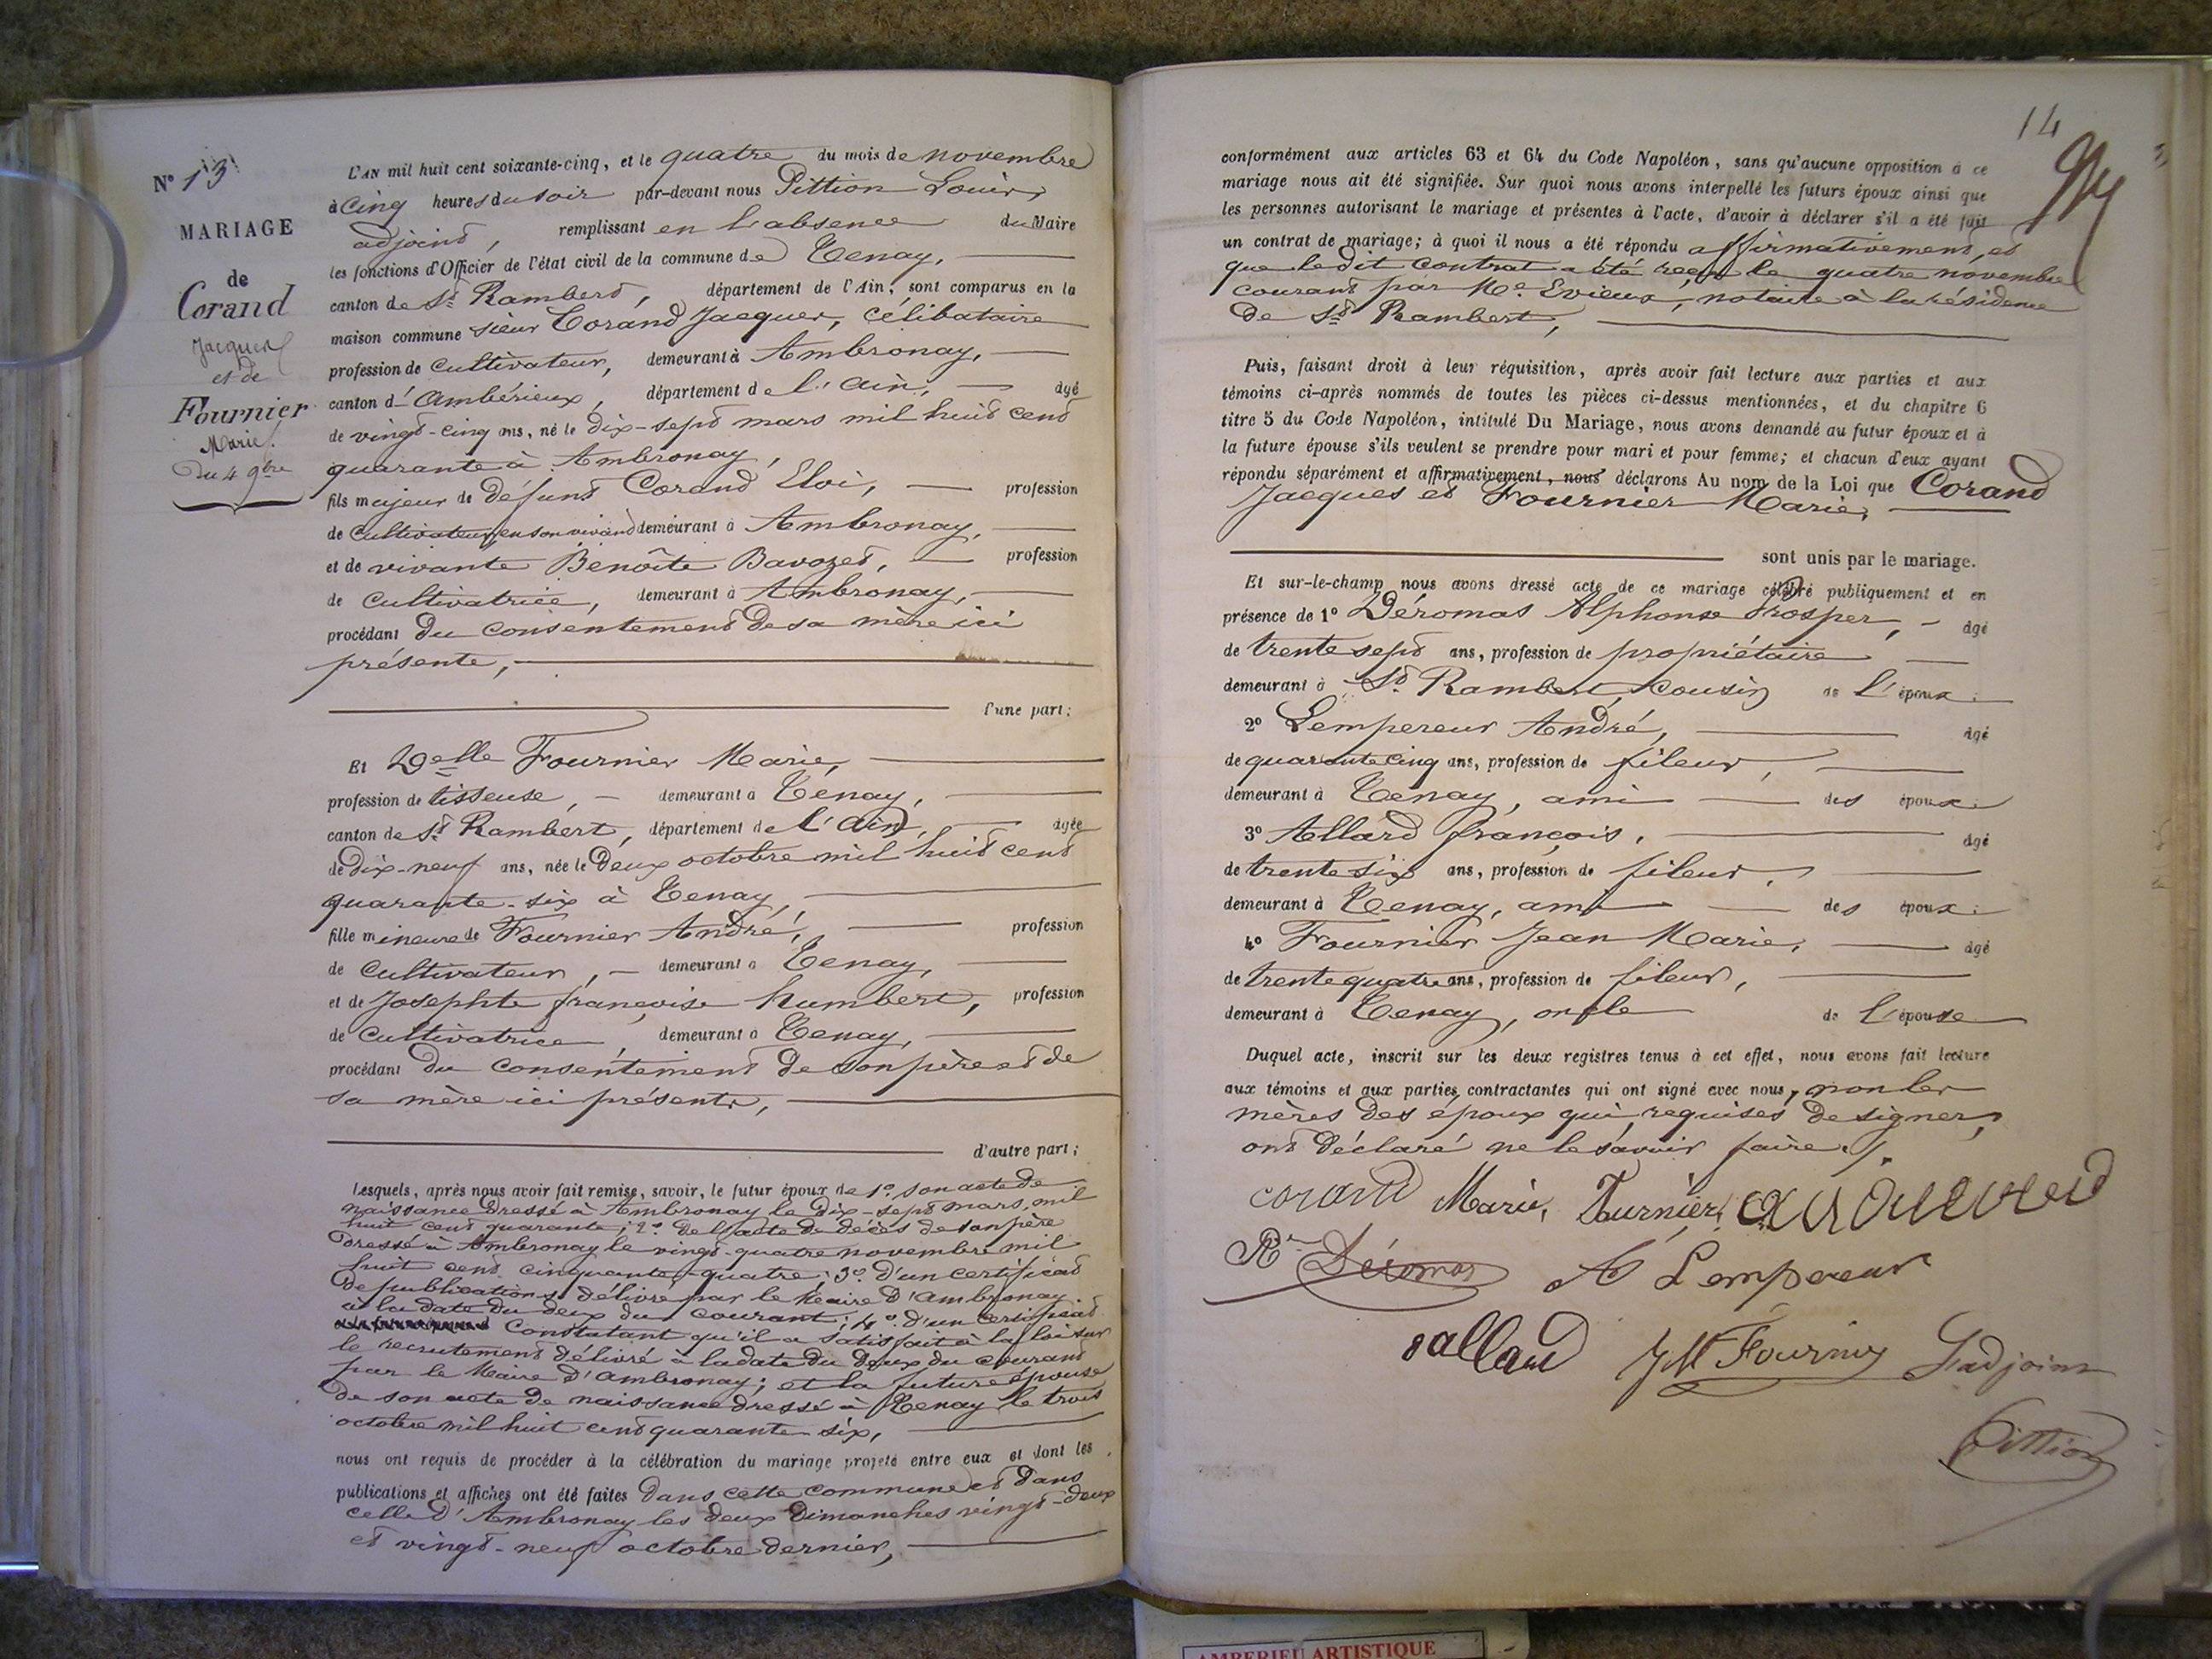 N° 13
MARIAGE
de
Corand
Jacques
et de
Fournier
Marie.
Du 4 9bre
L'AN mil huit cent soixante-cinq, et le quatre du mois de novembre
à cinq heures du soir par-devant nous Pittion Louis,
adjoint, remplissant en l'absence du Maire
les fonctions d'Officier de l'état civil de la commune de Tenay,
canton de St Rambert, département de l'Ain, sont comparus en la
maison commune sieur Corand Jacques, célibataire
profession de cultivateur, demeurant à Ambronay,
canton d'Ambérieux, département de l'Ain, âgé
de vingt-cinq ans, né le dix-sept mars mil huit cent
quarante à Ambronay,
fils majeur de défunt Corand Eloi, profession
de cultivateur en son vivant demeurant à Ambronay,
et de vivante Benoîte Bavozet, profession
de cultivatrice, demeurant à Ambronay,
procédant du consentement de sa mère ici
présente,
d'une part;
Et Delle Fournier Marie,
profession de tisseuse, demeurant à Tenay,
canton de St Rambert, département de l'Ain, âgée
de dix-neuf ans, née le deux octobre mil huit cent
quarante-six à Tenay,
fille mineure de Fournier André, profession
de cultivateur, demeurant à Tenay,
et de Josephte françoise humbert, profession
de cultivatrice, demeurant à Tenay,
procédant du consentement de son père et de
sa mère ici présents,
d'autre part;
Lesquels, après nous avoir fait remise, savoir, le futur époux de 1° son acte de
naissance dressé à Ambronay le dix-sept mars, mil
huit cent quarante; 2° de l'acte de décès de son père
dressé à Ambronay le vingt-quatre novembre mil
huit cent cinquante-quatre; 3° d'un certificat
de publications délivré par le Maire d'Ambronay
à la date du deux du courant; 4° d'un certificat
constatant qu'il a satisfait à la loi sur
le recrutement délivré à la date du deux du courant
par le Maire d'Ambronay; et la future épouse
de son acte de naissance dressé à Tenay le trois
octobre mil huit cent quarante-six,
nous ont requis de procéder à la célébration du mariage projeté entre eux et dont les
publications et affiches ont été faites dans cette commune et dans
celle d'Ambronay les deux dimanches vingt-deux
et vingt-neuf octobre dernier,
14
conformément aux articles 63 et 64 du Code Napoléon, sans qu'aucune opposition à ce
mariage nous ait été signifiée. Sur quoi nous avons interpellé les futurs époux ainsi que
les personnes autorisant le mariage et présentes à l'acte, d'avoir à déclarer s'il a été fait
un contrat de mariage; à quoi il nous a été répondu affirmativement, et
que ledit contrat a été reçu le quatre novembre
courant par Me Evieux, notaire à la résidence
de St Rambert,
Puis, faisant droit à leur réquisition, après avoir fait lecture aux parties et aux
témoins ci-après nommés de toutes les pièces ci-dessus mentionnées, et du chapitre 6
titre 5 du Code Napoléon, intitulé Du Mariage, nous avons demandé au futur époux et à
la future épouse s'ils veulent se prendre pour mari et pour femme; et chacun d'eux ayant
répondu séparément et affirmativement, nous déclarons Au nom de la Loi que Corand
Jacques et Fournier Marie,
sont unis par le mariage.
Et sur-le-champ nous avons dressé acte de ce mariage célébré publiquement et en
présence de 1° Déromas Alphonse Prosper, âgé
de trente sept ans, profession de propriétaire
demeurant à St Rambert, cousin de l'époux.
2° Lempereur André, âgé
de quarante cinq ans, profession de fileur,
demeurant à Tenay, ami des époux.
3° Allard françois, âgé
de trente six ans, profession de fileur,
demeurant à Tenay, ami des époux.
4° Fournier Jean Marie, âgé
de trente quatre ans, profession de fileur,
demeurant à Tenay, oncle de l'épouse
Duquel acte, inscrit sur les deux registres tenus à cet effet, nous avons fait lecture
aux témoins et aux parties contractantes qui ont signé avec nous, non les
mères des époux qui, requises de signer,
ont déclaré ne le savoir faire./.
corand Marie, Fournier,
Déromas A Lempereur
allard JM Fournier L'adjoint
Pittion
AMBERIEU ARTISTIQUE